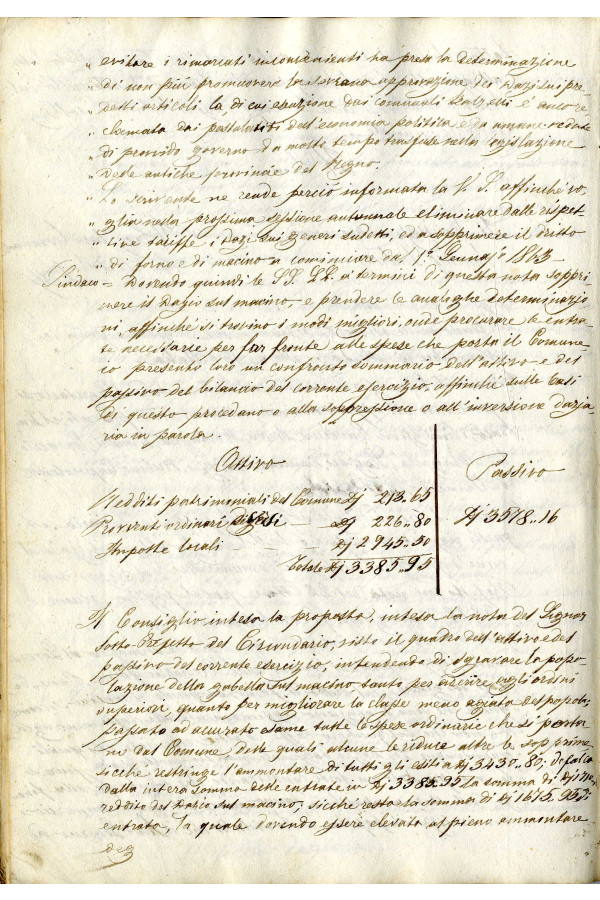 " evitare i rimarcati inconvenienti ha presa la determinazione
" di non più promuovere la sovrana approvazione dei Dazi sui pre=
" detti articoli la di cui esazione dai comunali Balzelli è
" dai postulati dell'economia politica e da
" di provvido governo da molto tempo trasfuse nella legislazione
" delle antiche provincie del Regno.
" Lo scrivente ne rende perciò informata la V. S. affinchè vo=
" glia nella prossima sessione autunnale eliminare dalle rispet=
" tive tariffe i dazi sui generi sudetti, ed a sopprimere il dritto
" di forno e di macino a cominciare dal 1º Gennajo 1863 -
Sindaco = Dovendo quindi le SS. LL. a termini di questa nota soppri
mere il Dazio sul macino, e prendere le analoghe determinazio
ni, affinchè si trovino i modi migliori, onde procurare le entra=
te necessarie per far fronte alle spese che porta il Comune
io presento loro un confronto sommario dell'attivo e del
passivo del bilancio del corrente esercizio, affinchè sulle basi
di questo procedano o alla soppressione o all'inversione dazia=
ria in parola.
Attivo
Passivo
Redditi patrimoniali del Comune Dj 213..65
Provventi ordinari - Dj 226..80
Dj 3578..16
Imposte locali - Dj 2945..50
Totale Dj 3385..95
Il Consiglio, intesa la proposta, intesa la nota del Signor
Sotto Prefetto del Circondario, visto il quadro dell'attivo e del
passivo del corrente esercizio, intendendo di sgravare la popo=
lazione della gabella sul macino, tanto per aderire agli ordini
superiori, quanto per migliorare la classe meno agiata del popolo;
passato ad accurato esame tutte le spese ordinarie che si porta
no dal Comune, delle quali alcune le riduce altre le sopprime
sicchè restringe l'ammontare di tutti gli esiti a Dj 3430..80; defalca
dalla intera somma delle entrate in Dj 3385..95 la somma di Dj 1710
reddito del Dazio sul macino; sicchè resta la somma di Dj 1675..95 di
entrata, la quale dovendo essere elevata al pieno ammontare
deg